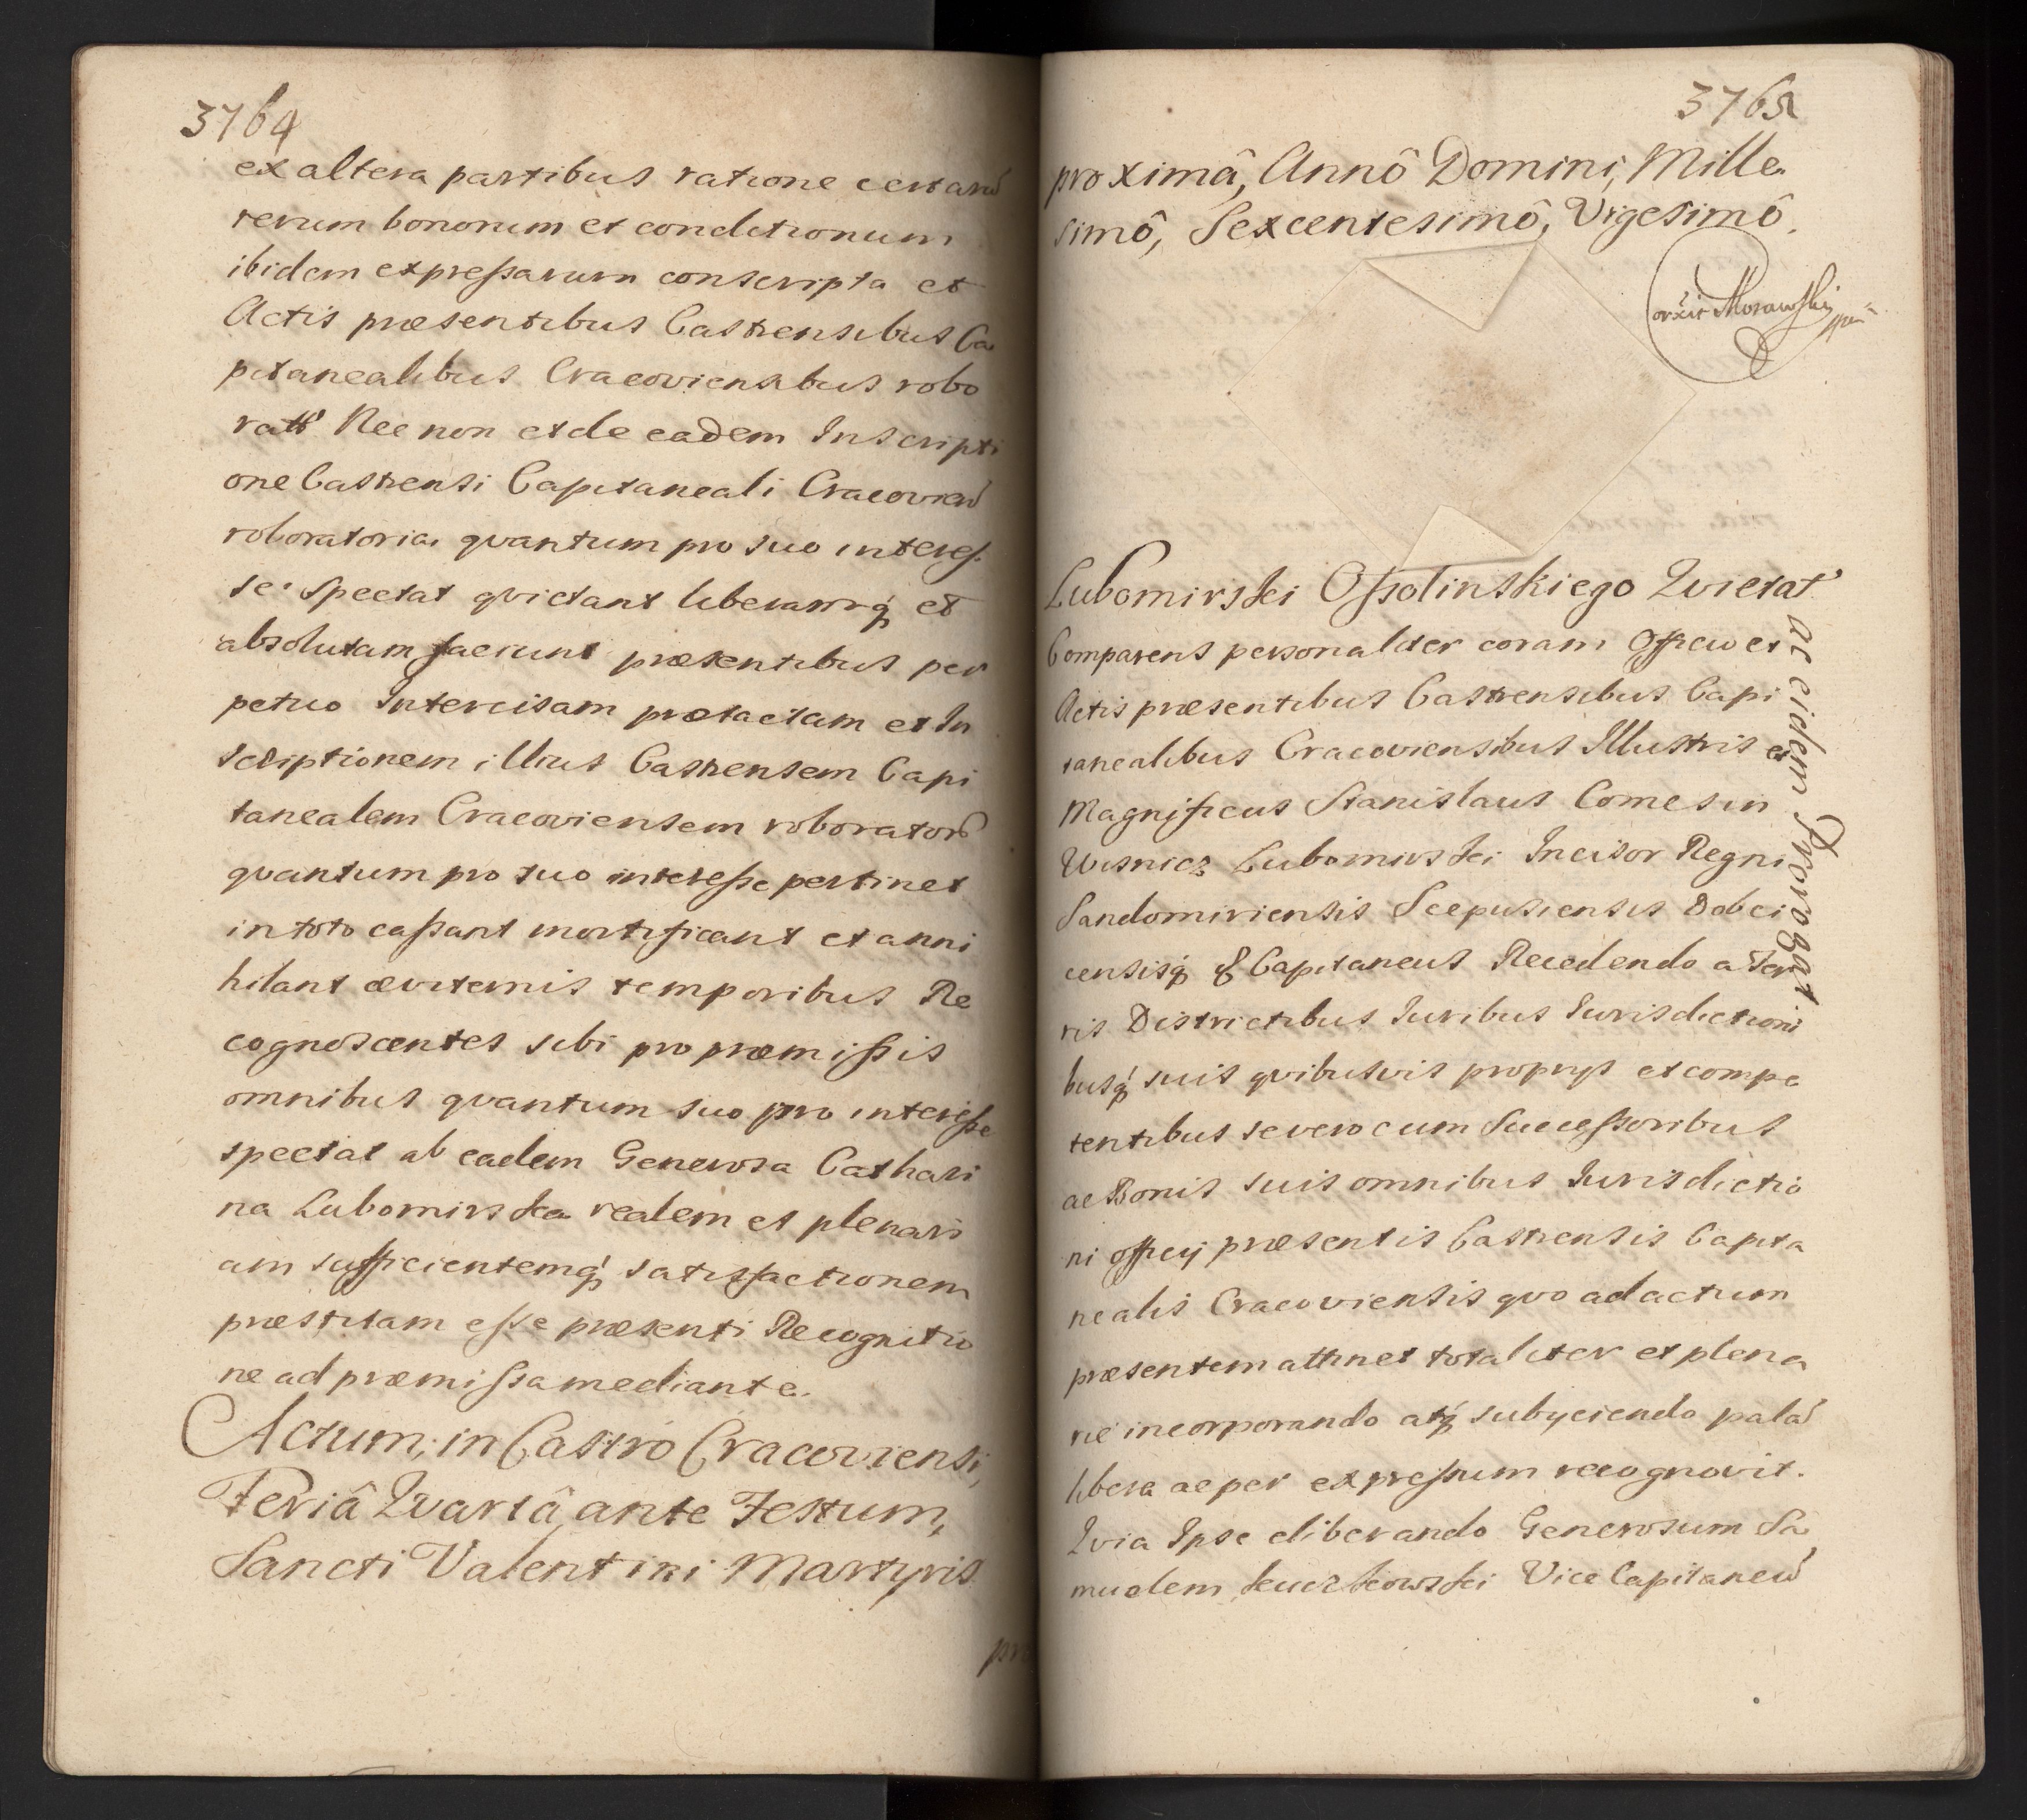 3764
ex altera partibus ratione certarũ
rerum bonorum et conditionum
ibidem expressarum conscripta et
Actis præsentibus Castrensibus Ca
pitanealibus Cracoviensibus robo
Nec non et de eadem Inscripti
one Castrensi Capitaneali Cracovien̄
roboratoria quantum pro suo interes
se spectat qvietant liberamq́ et
absolutam faciunt præsentibus per
petuo Intercisam prætactam et In
scriptionem illius Castrensem Capi
tanealem Cracoviensem roborator̄
qvantum pro suo interesse pertinet
in toto cassant mortificant et anni
hilant æviternis temporibus Re
cognoscentes sibi pro præmissis
omnibus qvantum suo pro interesse
spectat ab eadem Generosa Cathari
na Lubomirska realem et plenari
am sufficientemq́ satisfactionem
præstitam esse præsenti Recognitio
ne ad præmissa mediante.
Actum, in Castro Cracoviensi,
Feriâ Qvartâ, ante Festum,
Sancti Valentini Martyris
pro
3765
proximâ, Annô Domini, Mille
simô, Sexcentesimô, Vigesimô.
Morawski
Lubomirski Ossolinskiego Qvietat
ac eidem Prorogat
Comparens personaliter coram Officio et
Actis præsentibus Castrensibus Capi
tanealibus Cracoviensibus Illustris et
Magnificus Stanislaus Comes in
Wisnicz Lubomirski Incisor Regni
Sandomiriensis Scepusiensis Dobci
censisq́ & Capitaneus Recedendo a Ter
ris Districtibus Iuribus Iurisdictioni
busq́ suis qvibusvis proprys et compe
tentibus se vero cum Successoribus
ac Bonis suis omnibus Iurisdictio
ni officij præsentis Castrensis Capita
nealis Cracoviensis qvo ad actum
præsentem attinet totaliter et plena
rie incorporando atq́ subyciendo palā
libera ac per expressum recognovit.
Qvia Ipse eliberando Generosum Sa
muelem Vice Capitaneū